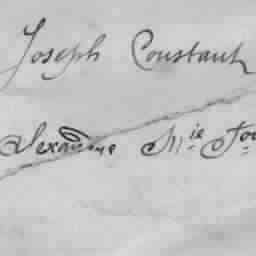 Joseph Constant
Alexandrine Mie Jos